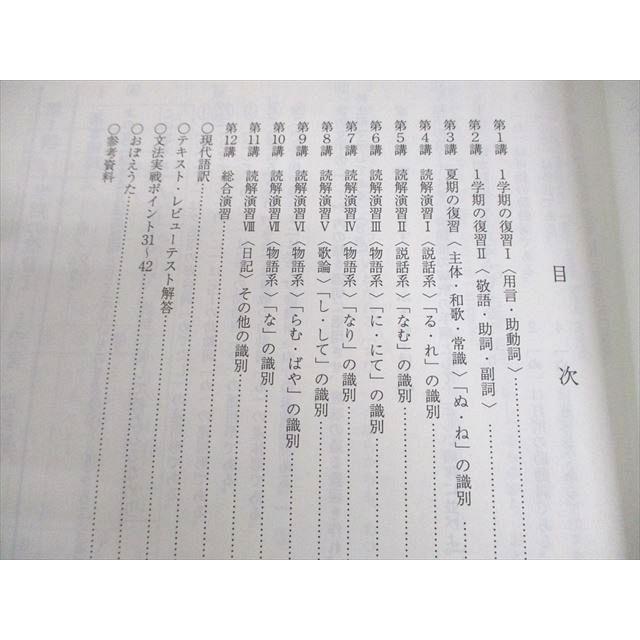 目次
第1講 1学期の復習Ⅰ〈用言・助動詞〉
第2講 1学期の復習Ⅱ〈敬語・助詞・副詞〉
第3講 夏期の復習〈主体・和歌・常識〉「ぬ・ね」の識別
第4講 読解演習Ⅰ〈説話系〉「る・れ」の識別
第5講 読解演習Ⅱ〈説話系〉「なむ」の識別
第6講 読解演習Ⅲ〈物語系〉「に・にて」の識別
第7講 読解演習Ⅳ〈物語系〉「なり」の識別
第8講 読解演習Ⅴ〈歌論〉「し・して」の識別
第9講 読解演習Ⅵ〈物語系〉「らむ・ばや」の識別
第10講 読解演習Ⅶ〈物語系〉「な」の識別
第11講 読解演習Ⅷ〈日記〉その他の識別
第12講 総合演習
○現代語訳
○テキスト・レビューテスト解答
○文法実戦ポイント31～42
○おぼえうた
○参考資料